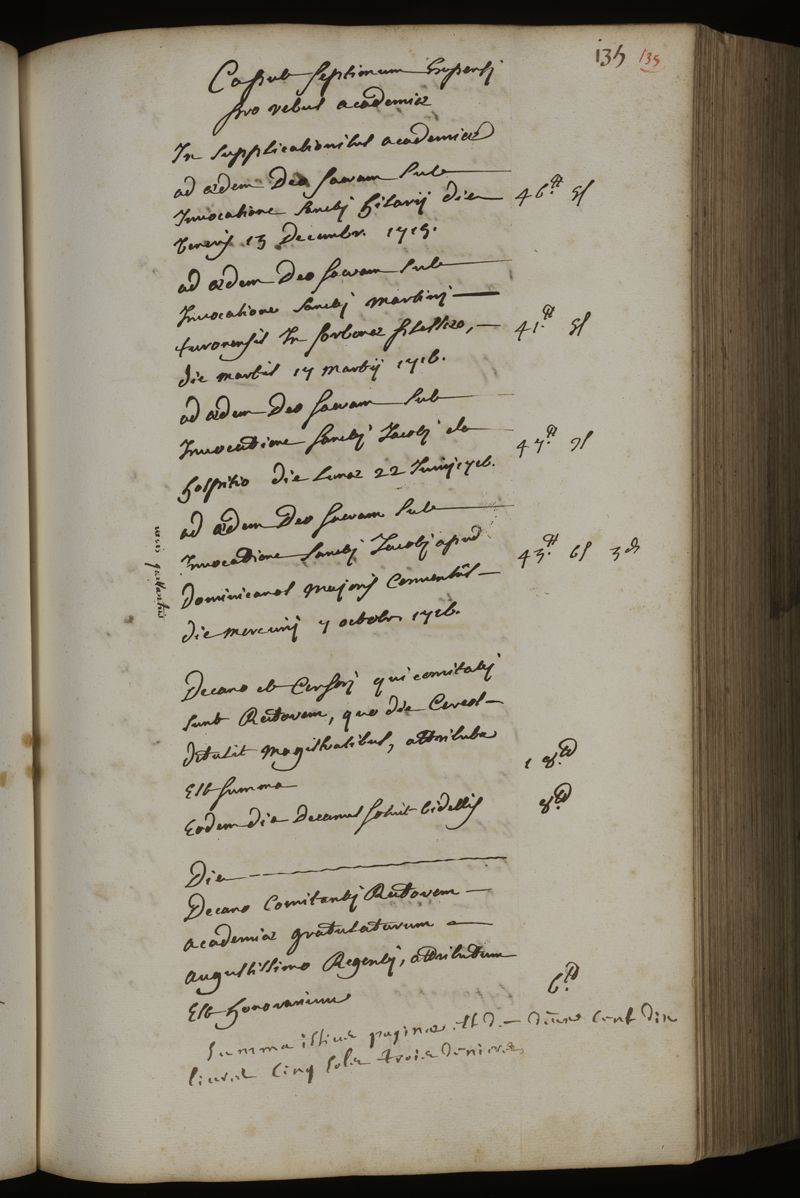 135 135
Caput septimum Expensj
pro rebus academiæ
In supplicationibus academiæ
ad ædem Deo sacram sub
Invocatione sanctj hilarij die 46.tt 5s
Veneris 13 Decembr. 1715.
ad ædem Deo sacram sub
Invocatione sanctj martinj
turonensis In sorbonæ plessæo, 41.tt 5s
die martis 17 martij 1716.
ad ædem Deo sacram sub
Invocatione sanctj Jacobj de 47.tt 9s
hospitio die lunæ 22 Junij 1716.
ad ædem Deo sacram sub
Invocatione sanctj Jacobj apud 43.tt 6s 3d
Dominicanos majoris Conventûs
die mercurij 7 octobr. 1716.
Decano et Censorj qui comitatj
sunt Rectorem, quo die Cereos
detulit magistratibus, attributa
Est summa 18.tt
Eodem die Decanus solvit bidellis 8.tt
Die
Decano Comitantj Rectorem
academiæ gratulaturum
augustissimo Regentj, attributum
Est honorarium 6.tt
Summa istius paginæ est de deux cent dix
livres Cinq sols trois deniers